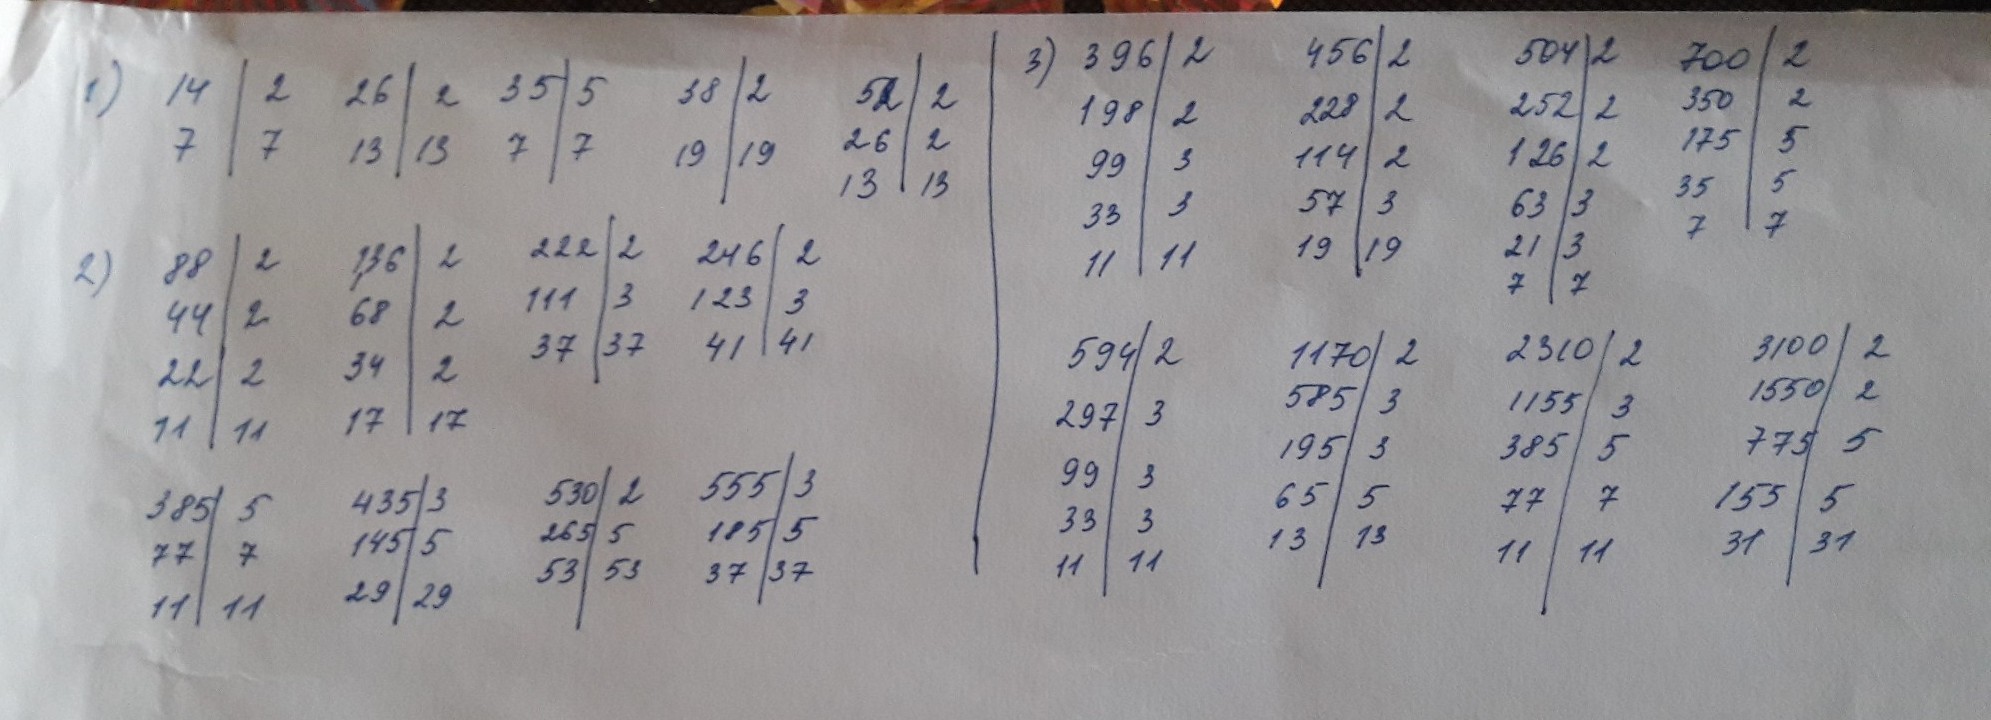 1) 14 | 2 26 | 2 35 | 5 38 | 2 52 | 2
7 | 7 13 | 13 7 | 7 19 | 19 26 | 2
13 | 13
2) 88 | 2 136 | 2 222 | 2 246 | 2
44 | 2 68 | 2 111 | 3 123 | 3
22 | 2 34 | 2 37 | 37 41 | 41
11 | 11 17 | 17
385 | 5 435 | 3 530 | 2 555 | 3
77 | 7 145 | 5 265 | 5 185 | 5
11 | 11 29 | 29 53 | 53 37 | 37
3) 396 | 2 456 | 2 504 | 2 700 | 2
198 | 2 228 | 2 252 | 2 350 | 2
99 | 3 114 | 2 126 | 2 175 | 5
33 | 3 57 | 3 63 | 3 35 | 5
11 | 11 19 | 19 21 | 3 7 | 7
7 | 7
594 | 2 1170 | 2 2310 | 2 3100 | 2
297 | 3 585 | 3 1155 | 3 1550 | 2
99 | 3 195 | 3 385 | 5 775 | 5
33 | 3 65 | 5 77 | 7 155 | 5
11 | 11 13 | 13 11 | 11 31 | 31